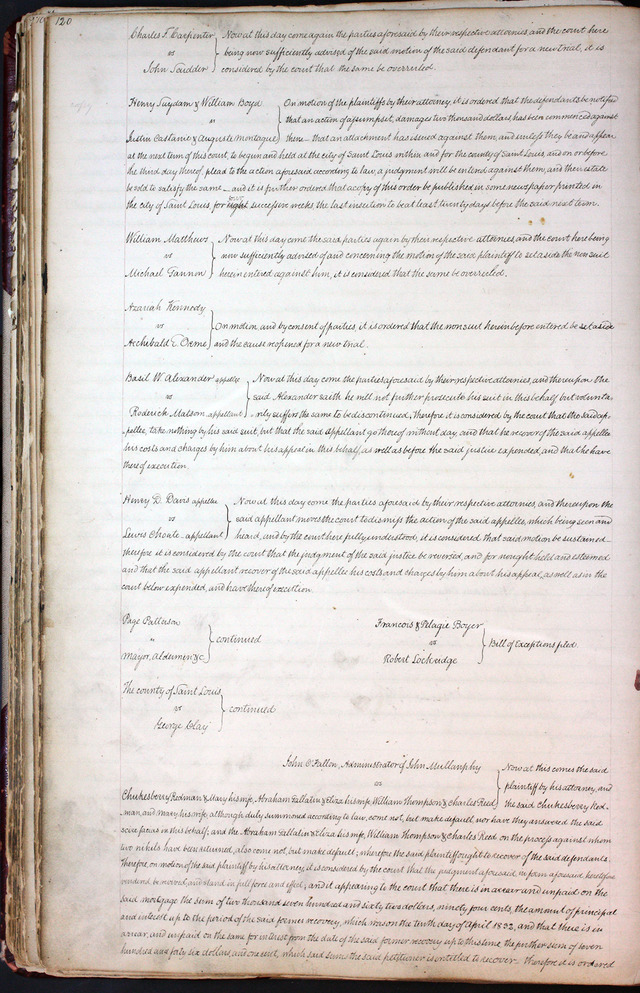 120
Charles F. Carpenter } Now at this day come again the parties aforesaid by their respective attornies and the court here
vs } being now sufficiently advised of the said motion of the said defendant for a new trial, it is
John Scudder } considered by the court that the same be overruled.
Henry Suydam & William Boyd } On motion of the plaintiffs by their attorney, it is ordered that the defendants be notified
vs } that an action of assumpsit, damages two thousand dollars, has been commenced against
Justin Castanie & Auguste Montague } them — that an attachment has issued against them, and unless they be and appear
at the next term of this court, to begun and held at the city of Saint Louis within and for the county of Saint Louis, and on or before
the third day thereof, plead to the action aforesaid according to law, a judgment will be entered against them, and their estate
be sold to satisfy the same — and it is further ordered that a copy of this order be published in some newspaper printed in
the city of Saint Louis for eight successive weeks, the last insertion to be at least twenty days before the said next term.
William Matthews } Now at this day come the said parties again by their respective attornies, and the court here being
vs } now sufficiently advised of and concerning the motion of the said plaintiff to set aside the non suit
Michael Tannon } herein entered against him, it is considered that the same be overruled.
Azariah Kennedy
vs } On motion, and by consent of parties, it is ordered that the non suit herein before entered be set aside
Archibald E. Orme } and the cause reopened for a new trial.
Basil W. Alexander appellee } Now at this day come the parties aforesaid by their respective attornies, and thereupon the
vs } said Alexander saith he will not further prosecute his suit in this behalf but volunta-
Roderick Matson appellant } rily suffers the same to be discontinued, therefore it is considered by the court that the said ap-
pellee, take nothing by his said suit, but that the said appellant go thereof without day and that he recover of the said appellee
his costs and charges by him about his appeal in this behalf, as well as before the said justice expended, and that he have
thereof execution.
Henry D. Davis appellee } Now at this day come the parties aforesaid by their respective attornies, and thereupon the
vs } said appellant moves the court to dismiss the action of the said appellee, which being seen and
Lewis Choate appellant } heard, and by the court here fully understood, it is considered that said motion be sustained
therefore it is considered by the court that the judgment of the said justice be reversed, and for nought held and esteemed
and that the said appellant recover of the said appellee his costs and charges by him about his appeal, as well as in the
court below expended, and have thereof execution.
Page Patterson
" } continued
Mayor, Aldermen &c
Francois & Pelagie Boyer
vs } Bill of Exceptions filed
Robert Lockridge
The county of Saint Louis
vs } continued
George Clay
John O'Fallon, Administrator of John Mullanphy } Now at this comes the said
vs } plaintiff by his attorney, and
Chukesberry Redman & Mary his wife, Abraham Gallatin & Eliza his wife William Thompson & Charles Reed } the said Chukesberry Red-
man, and Mary his wife, although duly summoned according to law, come not, but make default, nor have they answered the said
scire facias in this behalf; and the Abraham Gallatin & Eliza his wife, William Thompson & Charles Reed on the process against whom
two nihils have been returned, also come not, but make default; wherefore the said plaintiff ought to recover of the said defendants.
Therefore, on motion of the said plaintiff by his attorney, it is considered by the court that the judgment aforesaid, in form aforesaid heretofore
rendered be revived and stand in full force and effect; and it appearing to the court that there is in arear and unpaid on the
said mortgage the sum of two thousand seven hundred and sixty two dollars, ninety four cents, the amount of principal
and interest up to the period of the said former recovery, which was on the tenth day of April 1832, and that there is in
arear, and unpaid on the same for interest from the date of the said former recovery up to this time the further sum of seven
hundred and forty six dollars, and one cent, which said sums the said petitioner is entitled to recover — therefore it is ordered